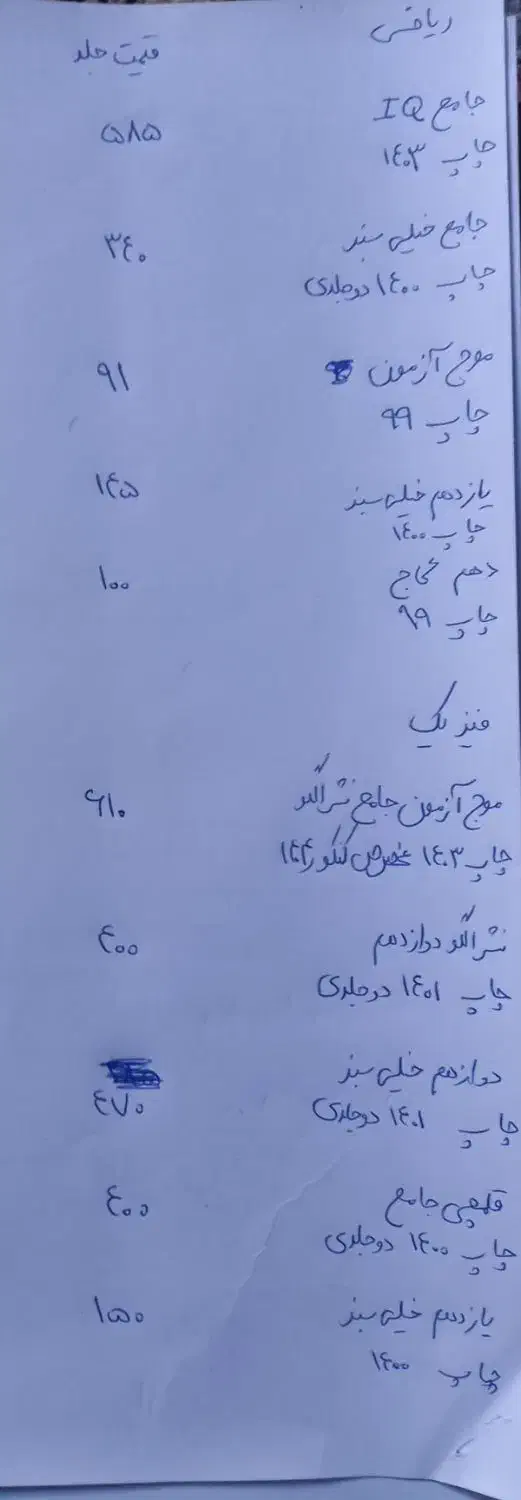 ریاضی
قیمت جلد
جامع IQ
۵۸۵
چاپ ۱۴۰۳
جامع خیلی سبز
۳۴۰
چاپ ۱۴۰۰ دوجلدی
موج آزمون
۹۱
چاپ ۹۹
یازدهم خیلی سبز
۱۴۵
چاپ ۱۴۰۰
دهم مهروماه
۱۰۰
چاپ ۹۹
فیزیک
موج آزمون جامع نشر الگو
۶۱۰
چاپ ۱۴۰۳ مخصوص کنکور ۱۴۰۴
نشر الگو دوازدهم
۴۰۰
چاپ ۱۴۰۱ دوجلدی
دوازدهم خیلی سبز
۴۷۰
چاپ ۱۴۰۱ دوجلدی
قلمچی جامع
۴۰۰
چاپ ۱۴۰۰ دوجلدی
یازدهم خیلی سبز
۱۵۰
چاپ ۱۴۰۰